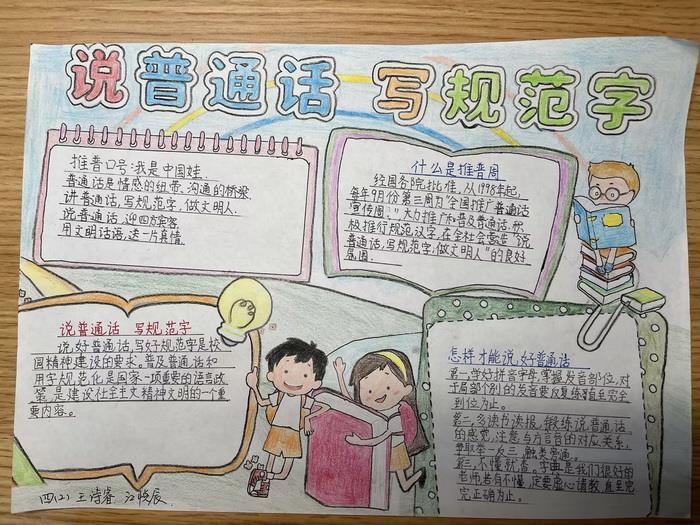 说普通话 写规范字
推普口号:我是中国娃.
普通话是情感的纽带、沟通的桥梁.
讲普通话,写规范字,做文明人.
说普通话,迎四方宾客.
用文明话语,送一片真情.
什么是推普周
经国务院批准,从1998年起,
每年9月份第三周为“全国推广普通话
宣传周.”大力推广和普及普通话,积
极推行规范汉字,在全社会营造“说
普通话,写规范字,做文明人”的良好
氛围.
说普通话 写规范字
说好普通话,写好规范字是校
园精神建设的要求。普及普通话和
用字规范化是国家一项重要的语言政
策,是建设社会主文精神文明的一个重
要内容。
怎样才能说好普通话
第一,学好拼音字母,掌握发音部位,对
于局部个别的发音要反复练习直至完全
到位为止。
第二,多读书读报,锻练说普通话
的感觉,注意与方言音的对应关系,
争取举一反三,触类旁通。
第三,不懂就查。字典是我们很好的
老师若有不懂,定要虚心请教,直至完
完正确为止。
四(2) 王诗睿 江悦辰